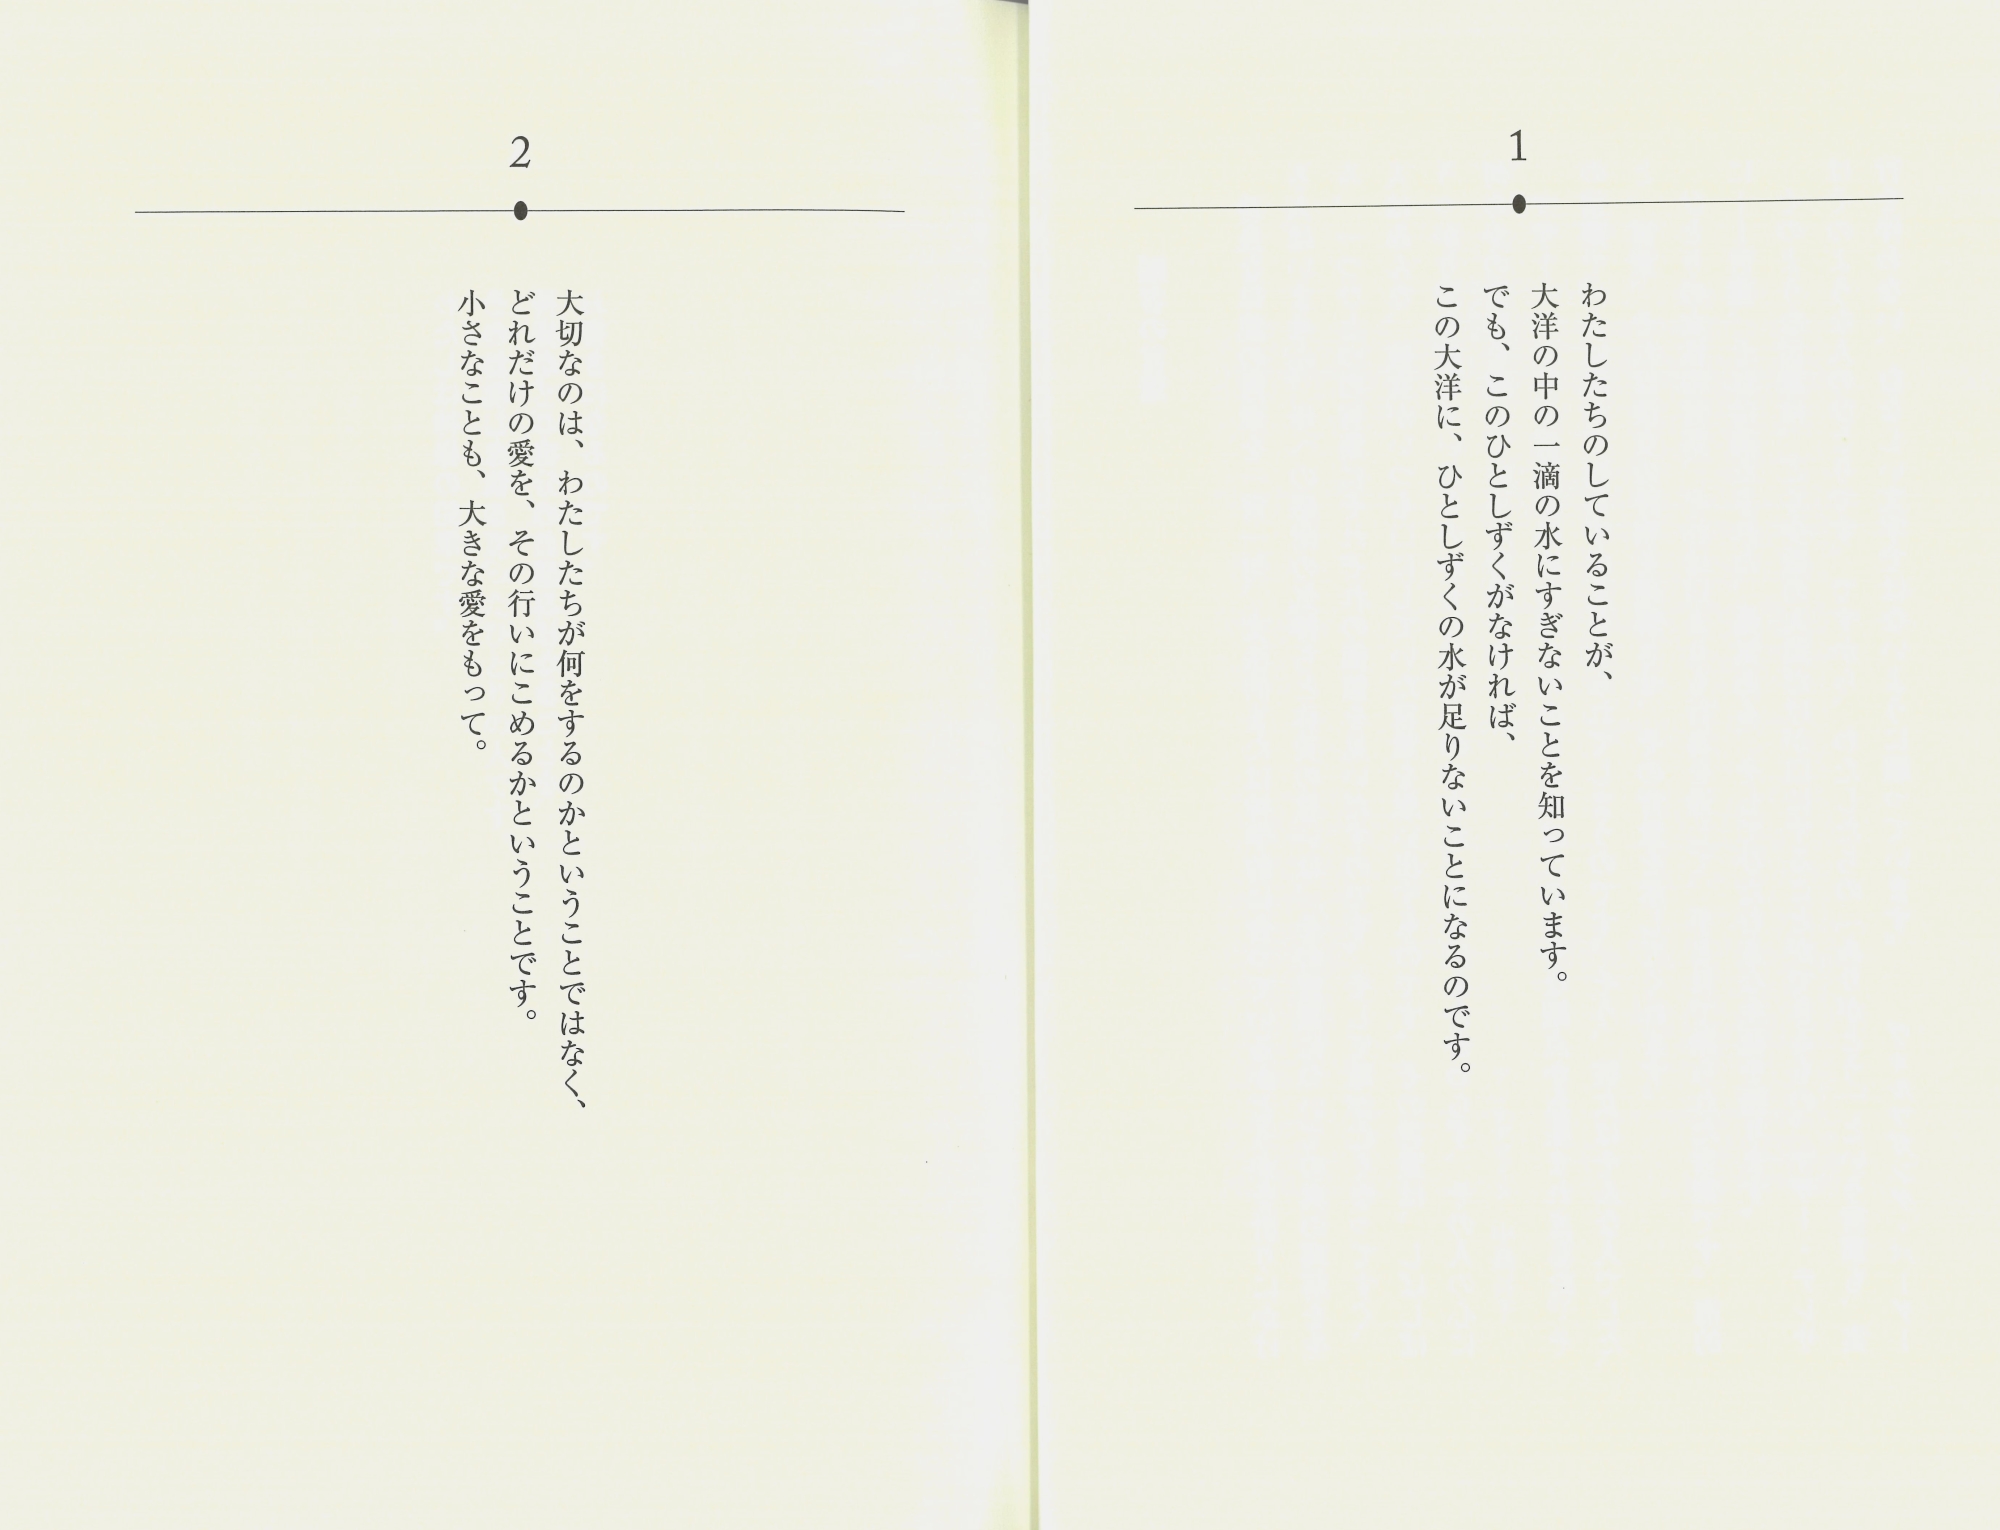 1
わたしたちのしていることが、
大洋の中の一滴の水にすぎないことを知っています。
でも、このひとしずくがなければ、
この大洋に、ひとしずくの水が足りないことになるのです。
2
大切なのは、わたしたちが何をするのかということではなく、
どれだけの愛を、その行いにこめるかということです。
小さなことも、大きな愛をもって。